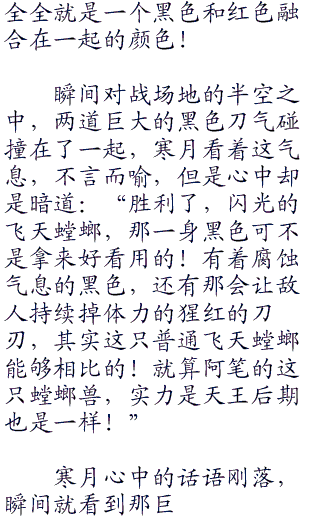 全全就是一个黑色和红色融
合在一起的颜色！
瞬间对战场地的半空之
中，两道巨大的黑色刀气碰
撞在了一起，寒月看着这气
息，不言而喻，但是心中却
是暗道：“胜利了，闪光的
飞天螳螂，那一身黑色可不
是拿来好看用的！有着腐蚀
气息的黑色，还有那会让敌
人持续掉体力的猩红的刀
刃，其实这只普通飞天螳螂
能够相比的！就算阿笔的这
只螳螂兽，实力是天王后期
也是一样！”
寒月心中的话语刚落，
瞬间就看到那巨